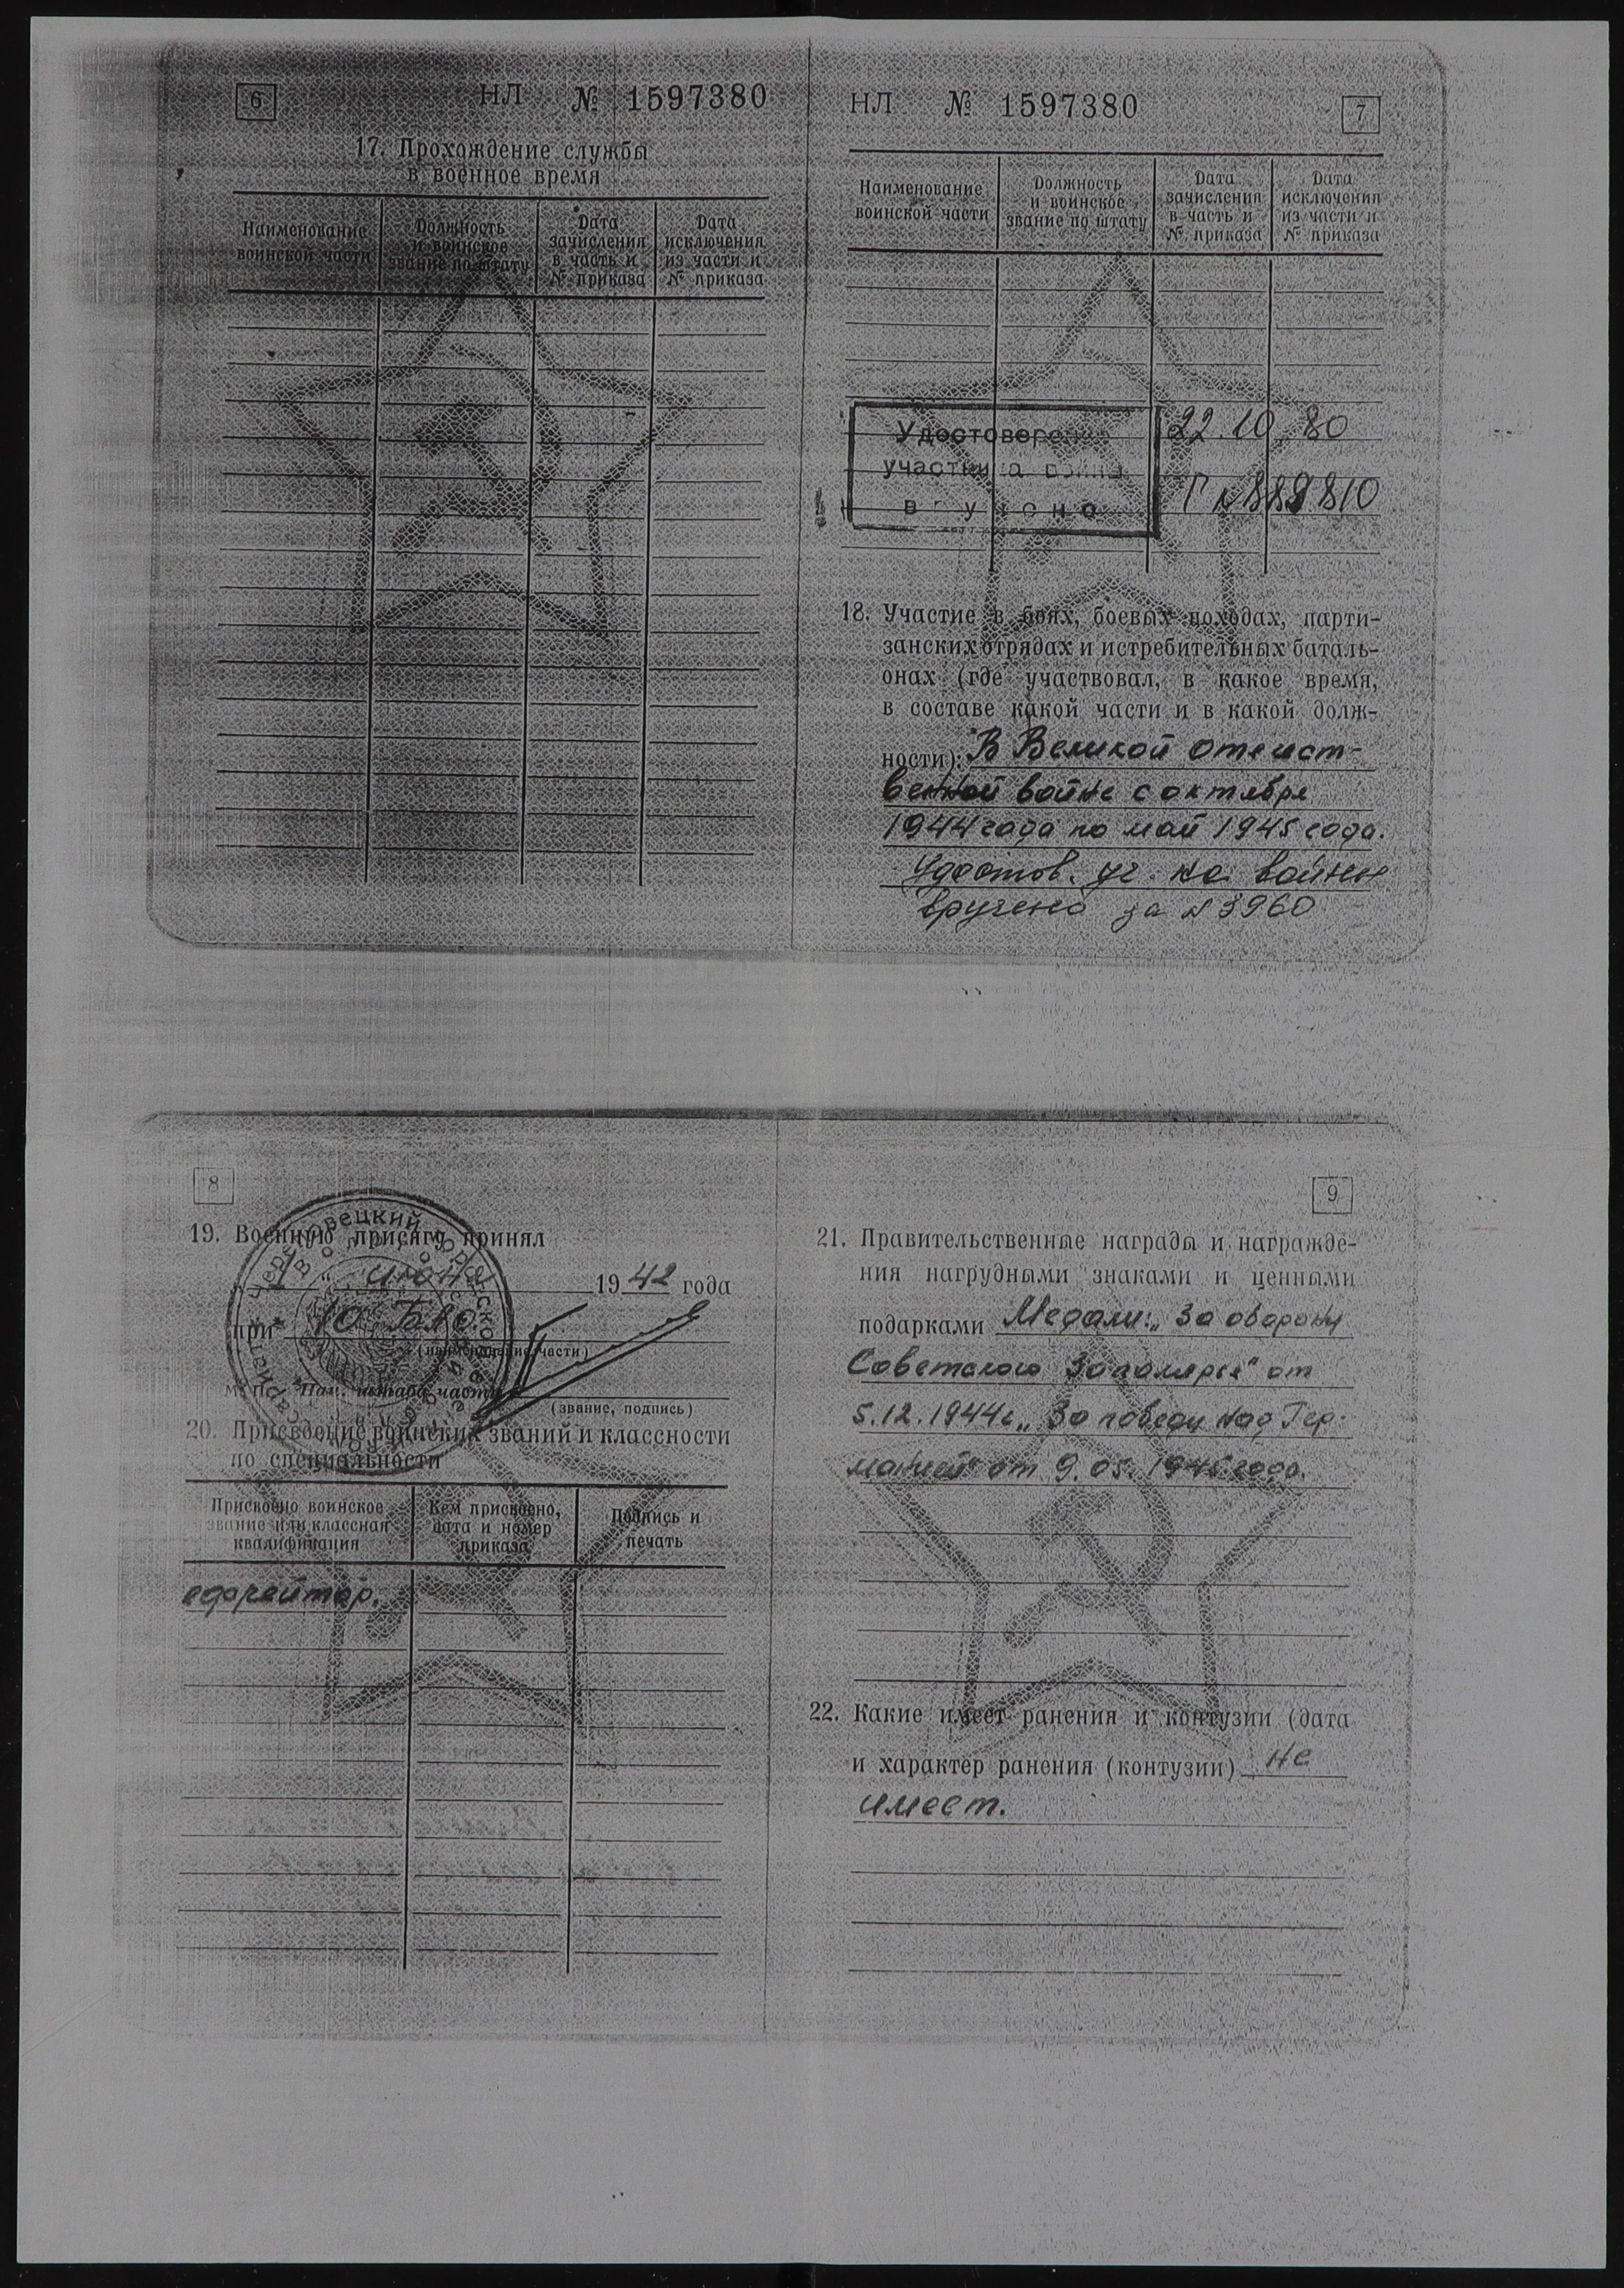 6
НЛ № 1597380
17. Прохождение службы
в военное время
Наименование
воинской части
Должность
и воинское
звание по штату
Дата
зачисления
в часть и
№ приказа
Дата
исключения
из части и
№ приказа
НЛ № 1597380
7
Наименование
воинской части
Должность
и воинское
звание по штату
Дата
зачисления
в часть и
№ приказа
Дата
исключения
из части и
№ приказа
Удостоверение
участника войны
вручено
22.10.80
Г №889810
18. Участие в боях, боевых походах, парти-
занских отрядах и истребительных баталь-
онах (где участвовал, в какое время,
в составе какой части и в какой долж-
ности): В Великой отечест-
венной войне с октября
1944 года по май 1945 года.
Удостов. уч-ка войны
вручено за №3960
8
19. Военную присягу принял
„1“ июня 1942 года
при
(наименование части)
М. П. Нач. штаба части
(звание, подпись)
20. Присвоение воинских званий и классности
по специальности
Присвоено воинское
звание или классная
квалификация
Кем присвоено,
дата и номер
приказа
Подпись и
печать
ефрейтор.
9
21. Правительственные награды и награжде-
ния нагрудными знаками и ценными
подарками Медали: „За оборону
Советского Заполярья“ от
5.12.1944г „За победу над Гер-
манией“ от 9.05.1945 года.
22. Какие имеет ранения и контузии (дата
и характер ранения (контузии) не
имеет.